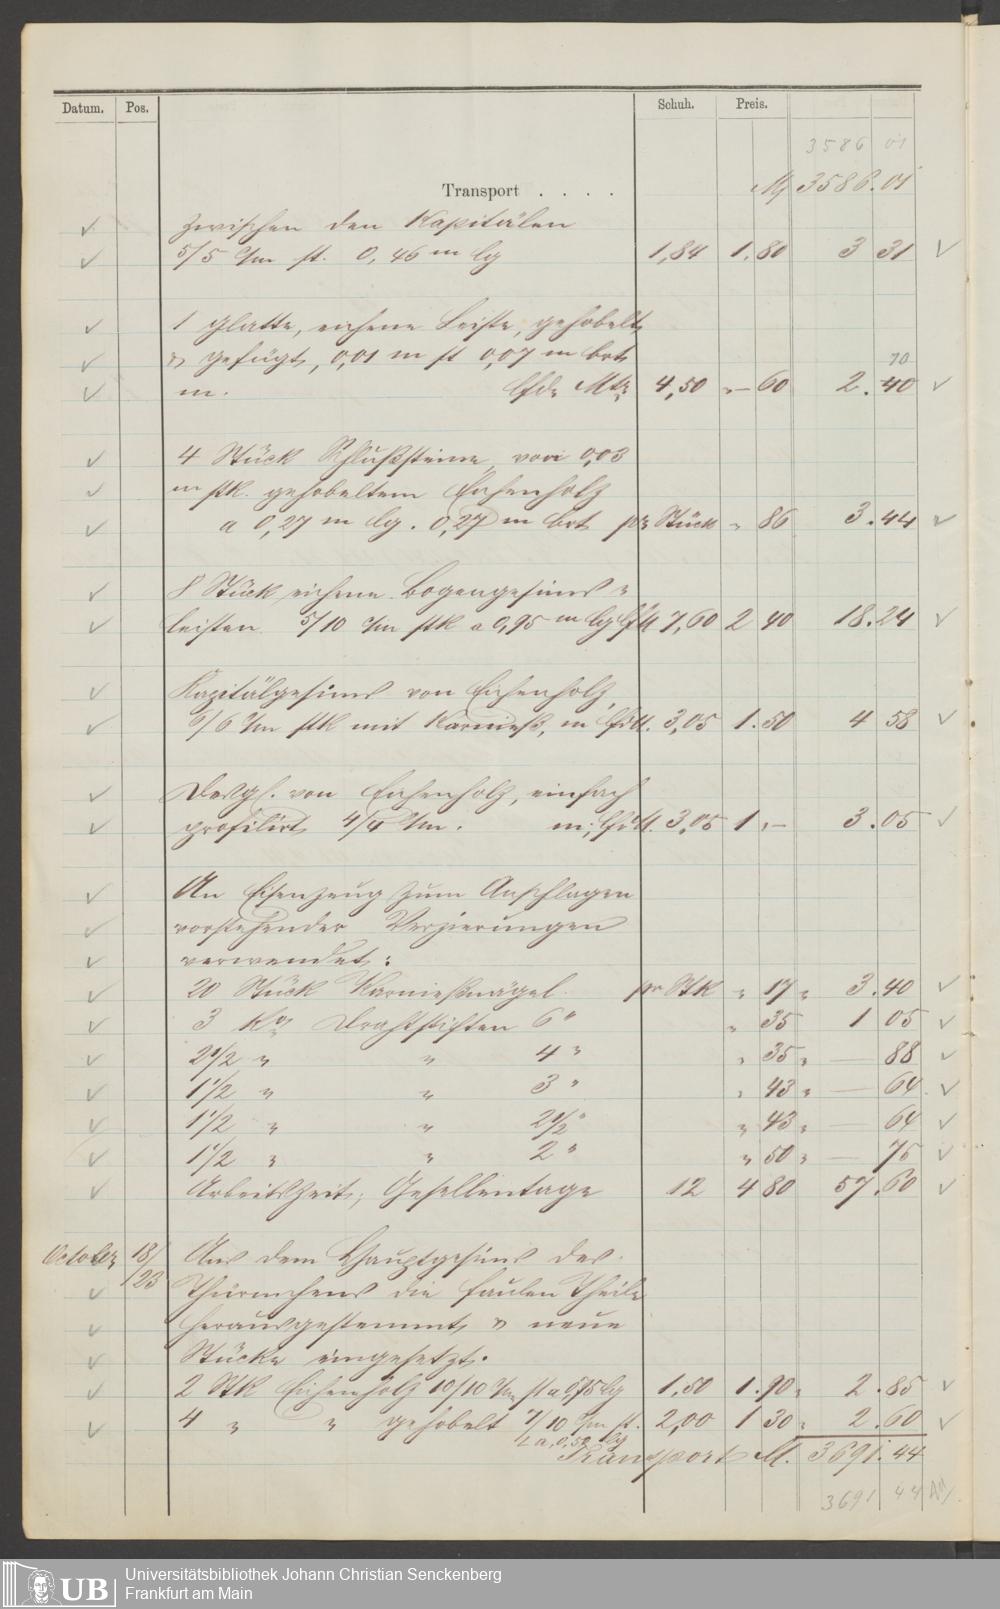 Datum. Pos. Schuh. Preis.
3586 01
Transport . . . . M 3586.01
zwischen den Kapitälen
5/5 c/m st. 0,46 m lg 1,84 1.80 3 31
1 glatte, eichene Leiste, gehobelt
& gefügt, 0,01 m st 0,07 m brt 70
m. lfd. Mtr 4,50 " – 60 2.40
4 Stück Schlußsteine, von 0,03
m stk. gehobeltem Eichenholz
a 0,27 m lg. 0,27 m brt pr Stück " 86 3.44
8 Stück eichene Bogengesims-
leisten 5/10 c/m stk a 0,95 m lg lfd 7,60 2 40 18.24
Kapitälgesims von Eichenholz,
6/6 c/m stk mit Karnieß, m lfd. 3,05 1.50 4 58
Desgl. von Eichenholz, einfach
profilirt 4/4 c/m. m, lfd. 3,05 1.– 3.05
An Eisenzeug zum Anschlagen
vorstehender Verzierungen
verwendet:
20 Stück Karnießnägel pr Stk " 17 " 3.40
3 Drahtstiften 6" " 35 1 05
2 1/2 " " 4" " 35 " — 88
1 1/2 " " 3" " 43 " — 64
1 1/2 " " 2 1/2" " 43 " — 64
1 1/2 " " 2" " 50 " — 75
Arbeitszeit, Gesellentage 12 4 80 57.60
October 18/23 Aus dem Hauptgesims des
Thürmchens die faulen Theile
herausgestemmt & neue
Stücke eingesetzt.
2 Stk Eichenholz 10/10 c/m st a 0,75 lg 1,50 1.90 " 2.85
4 " " gehobelt 7/10 c/m st. 2,00 1 30 " 2.60
a 0,50 lg
Transport M. 3691.44
3691 44
UB Universitätsbibliothek Johann Christian Senckenberg
Frankfurt am Main